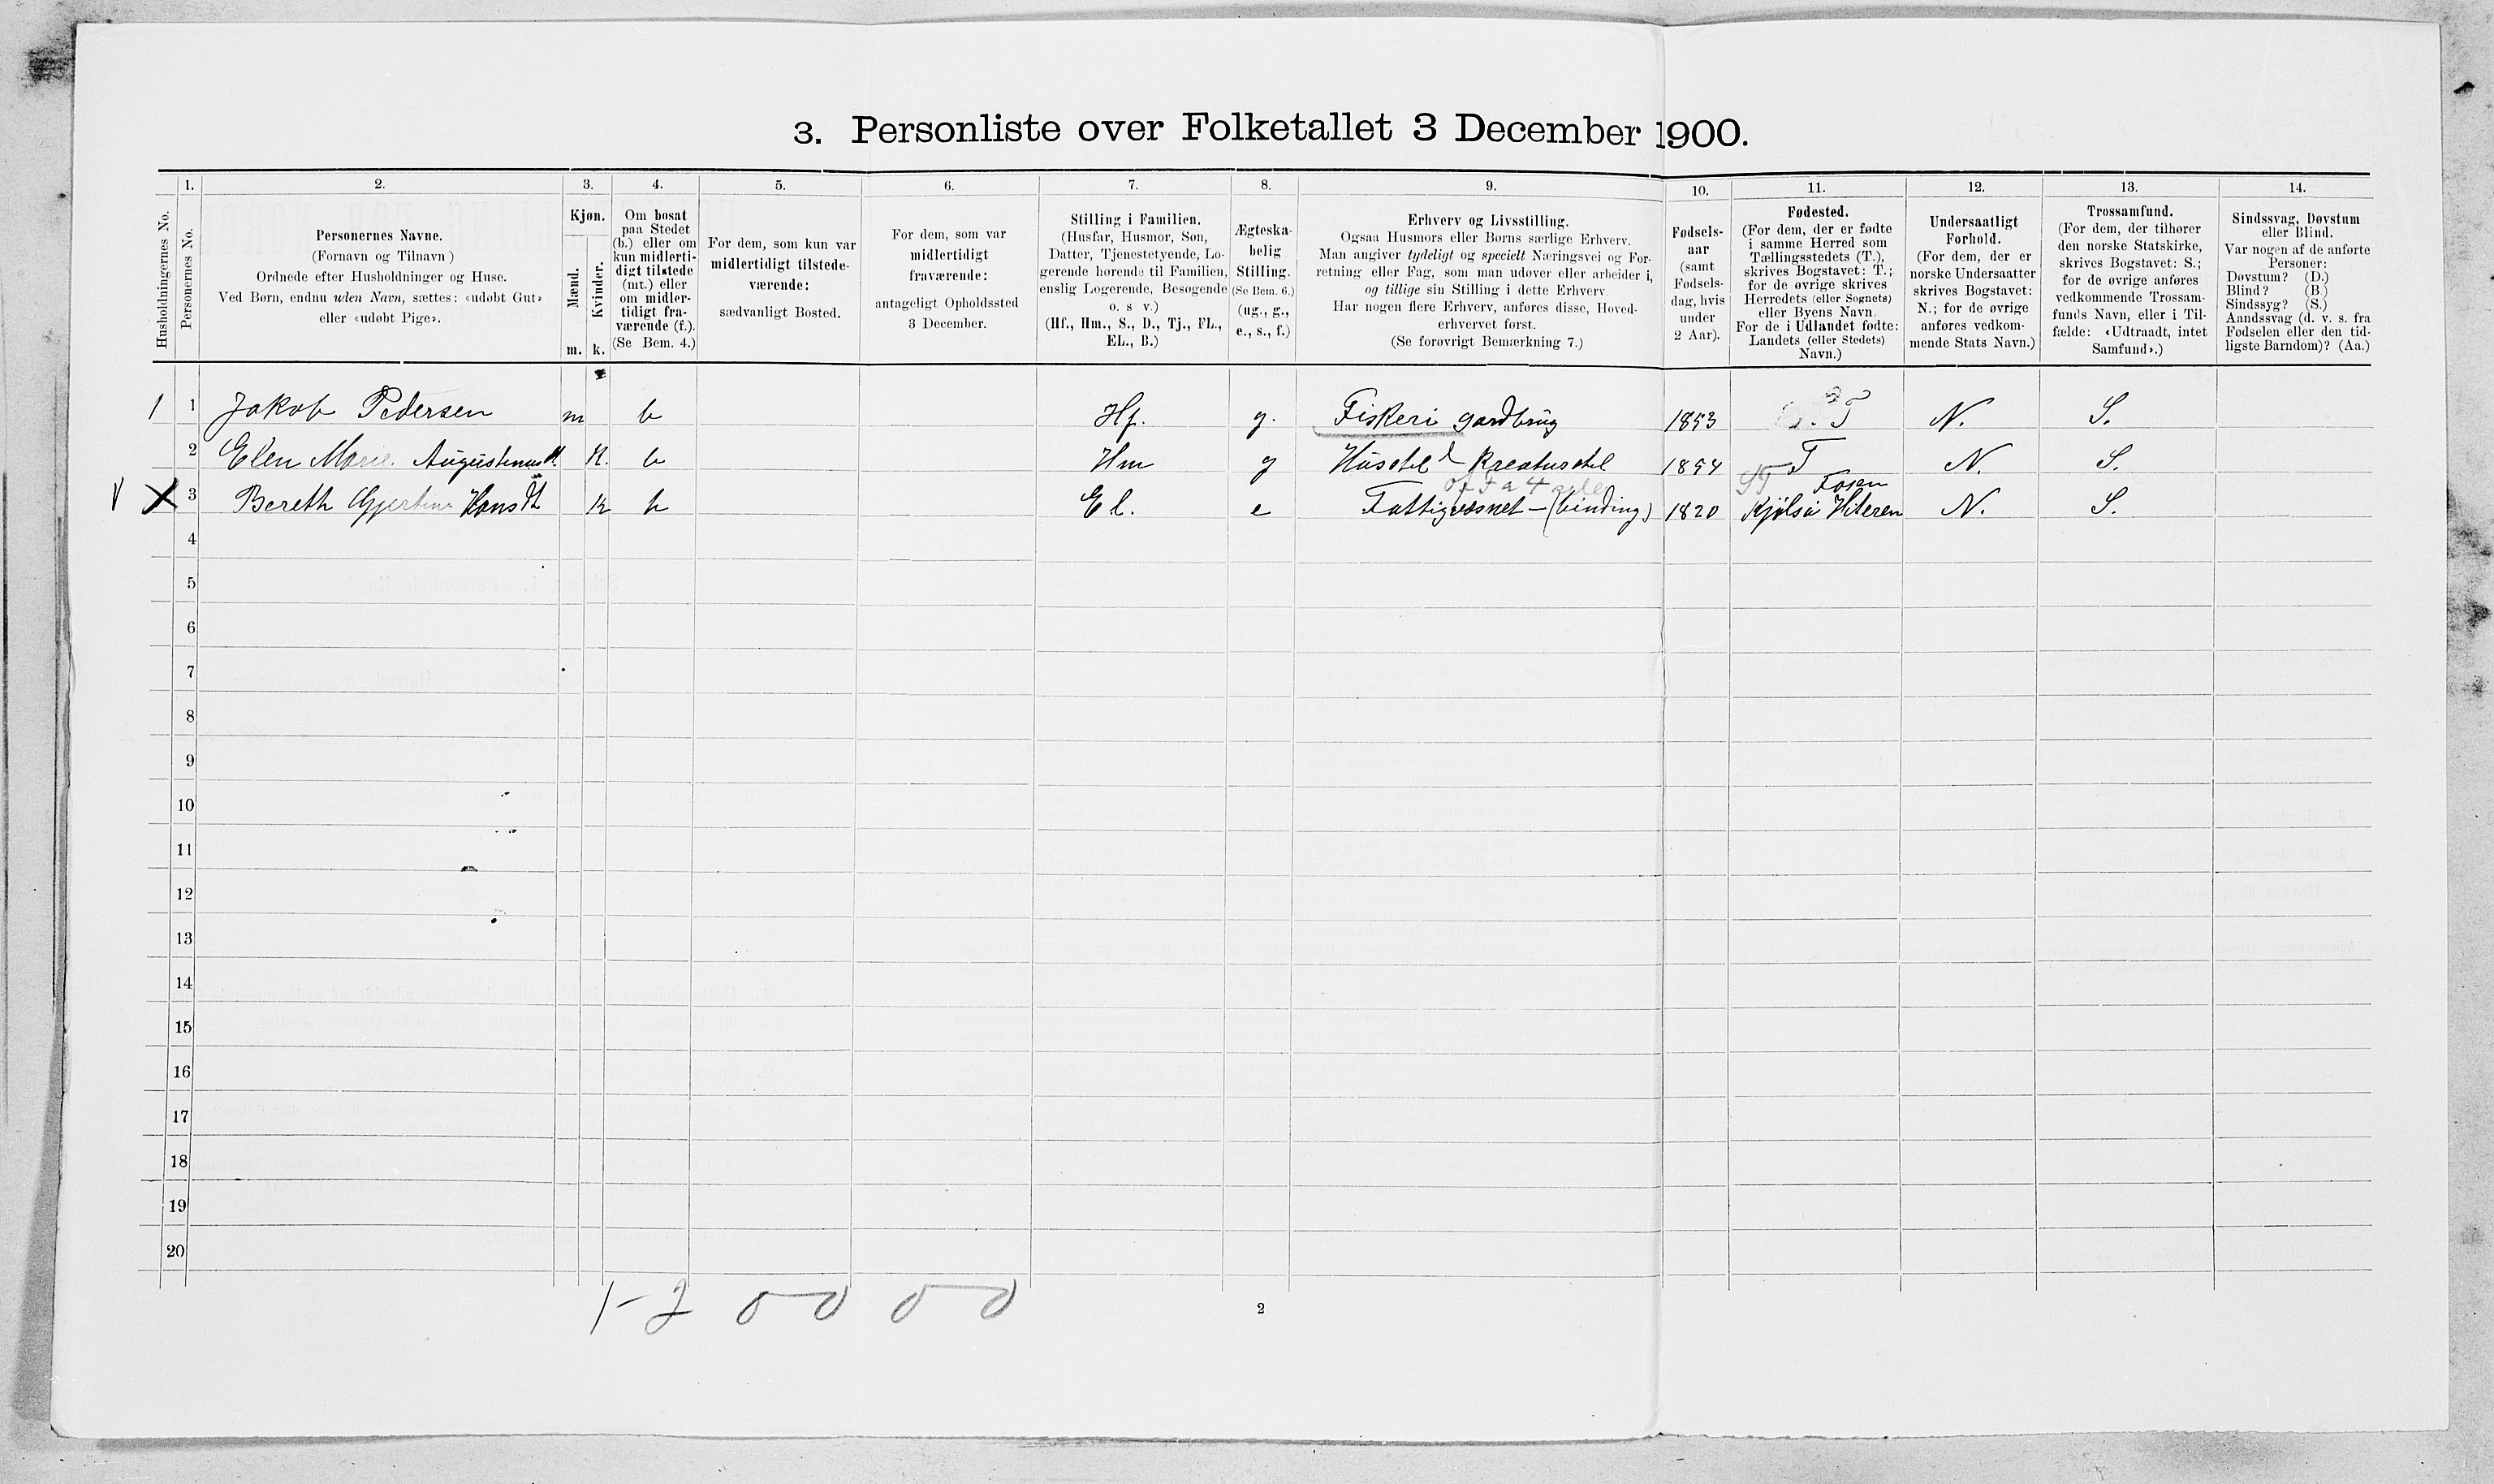 3. Personliste over Folketallet 3 December 1900.
Husholdningernes No.
1.
Personernes No.
2.
Personernes Navne.
(Fornavn og Tilnavn)
Ordnede efter Husholdninger og Huse.
Ved Børn, endnu uden Navn, sættes: «udøbt Gut»
eller «udøbt Pige».
3.
Kjøn.
Mænd.
Kvinder.
m. k.
4.
Om bosat
paa Stedet
(b.) eller om
kun midlerti-
digt tilstede
(mt.) eller
om midler-
tidigt fra-
værende (f.).
(Se Bem. 4.)
5.
For dem, som kun var
midlertidigt tilstede-
værende:
sædvanligt Bosted.
6.
For dem, som var
midlertidigt
fraværende:
antageligt Opholdssted
3 December.
7.
Stilling i Familien.
(Husfar, Husmor, Søn,
Datter, Tjenestetyende, Lo-
gerende hørende til Familien,
enslig Logerende, Besøgende
o. s v.)
(Hf., Hm., S., D., Tj., FL.,
EL., B.)
8.
Ægteska-
belig
Stilling.
(Se Bem. 6.)
(ug., g.,
e., s., f.)
9.
Erhverv og Livsstilling.
Ogsaa Husmors eller Børns særlige Erhverv.
Man angiver tydeligt og specielt Næringsvei og For-
retning eller Fag, som man udøver eller arbeider i,
og tillige sin Stilling i dette Erhverv.
Har nogen flere Erhverv, anføres disse, Hoved-
erhvervet først.
(Se forøvrigt Bemærkning 7.)
10.
Fødsels-
aar
(samt
Fødsels-
dag, hvis
under
2 Aar).
11.
Fødested.
(For dem, der er fødte
i samme Herred som
Tællingsstedets (T.),
skrives Bogstavet: T.;
for de øvrige skrives
Herredets (eller Sognets)
eller Byens Navn.
For de i Udlandet fødte:
Landets (eller Stedets)
Navn.)
12.
Undersaatligt
Forhold.
(For dem, der er
norske Undersaatter
skrives Bogstavet:
N.; for de øvrige
anføres vedkom-
mende Stats Navn.)
13.
Trossamfund.
(For dem, der tilhører
den norske Statskirke,
skrives Bogstavet: S.;
for de øvrige anføres
vedkommende Trossam-
funds Navn, eller i Til-
fælde: «Udtraadt, intet
Samfund».)
14.
Sindssvag, Døvstum
eller Blind.
Var nogen af de anførte
Personer:
Døvstum? (D.)
Blind? (B.)
Sindssyg? (S.)
Aandssvag (d. v. s. fra
Fødselen eller den tid-
ligste Barndom)? (Aa.)
1 1 Jakob Pedersen m b Hf. g. Fiskeri gardbrug 1853 T N. S.
2 Elen Marie Augustinusd. K. b Hm g Husstel Kreaturstel 1854 T N. S.
Fosen
X 3 Bereth Gjertine Hansdt k b El. e Fattigvæsnet - (binding) 1820 Kjølsø Hiteren N. S.
4
5
6
7
8
9
10
11
12
13
14
15
16
17
18
19
20
1-2 0-0 0-0
2